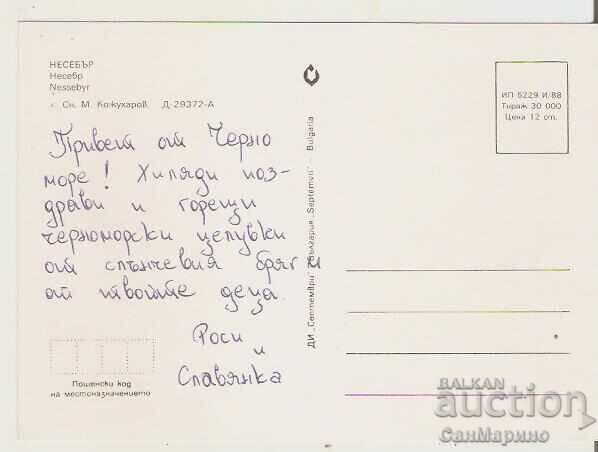 НЕСЕБЪР
Несебр
Nessebyr
Сн. М. Кожухаров. Д-29372-А
Привет от Черно
море! Хиляди поз-
драви и горещи
черноморски целувки
от слънчевия бряг и
от твоите деца.
Роси
и
Славянка
Пощенски код
на местоназначението
ДИ „Септември" България „Septemvri" – Bulgaria
ИП 5229 И/88
Тираж 30 000
Цена 12 ст.
BALKAN
auction
СанМарино